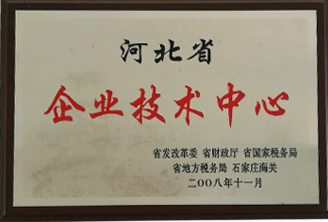 河北省
企业技术中心
省发改革委 省财政厅 省国家税务局
省地方税务局 石家庄海关
二〇〇八年十一月